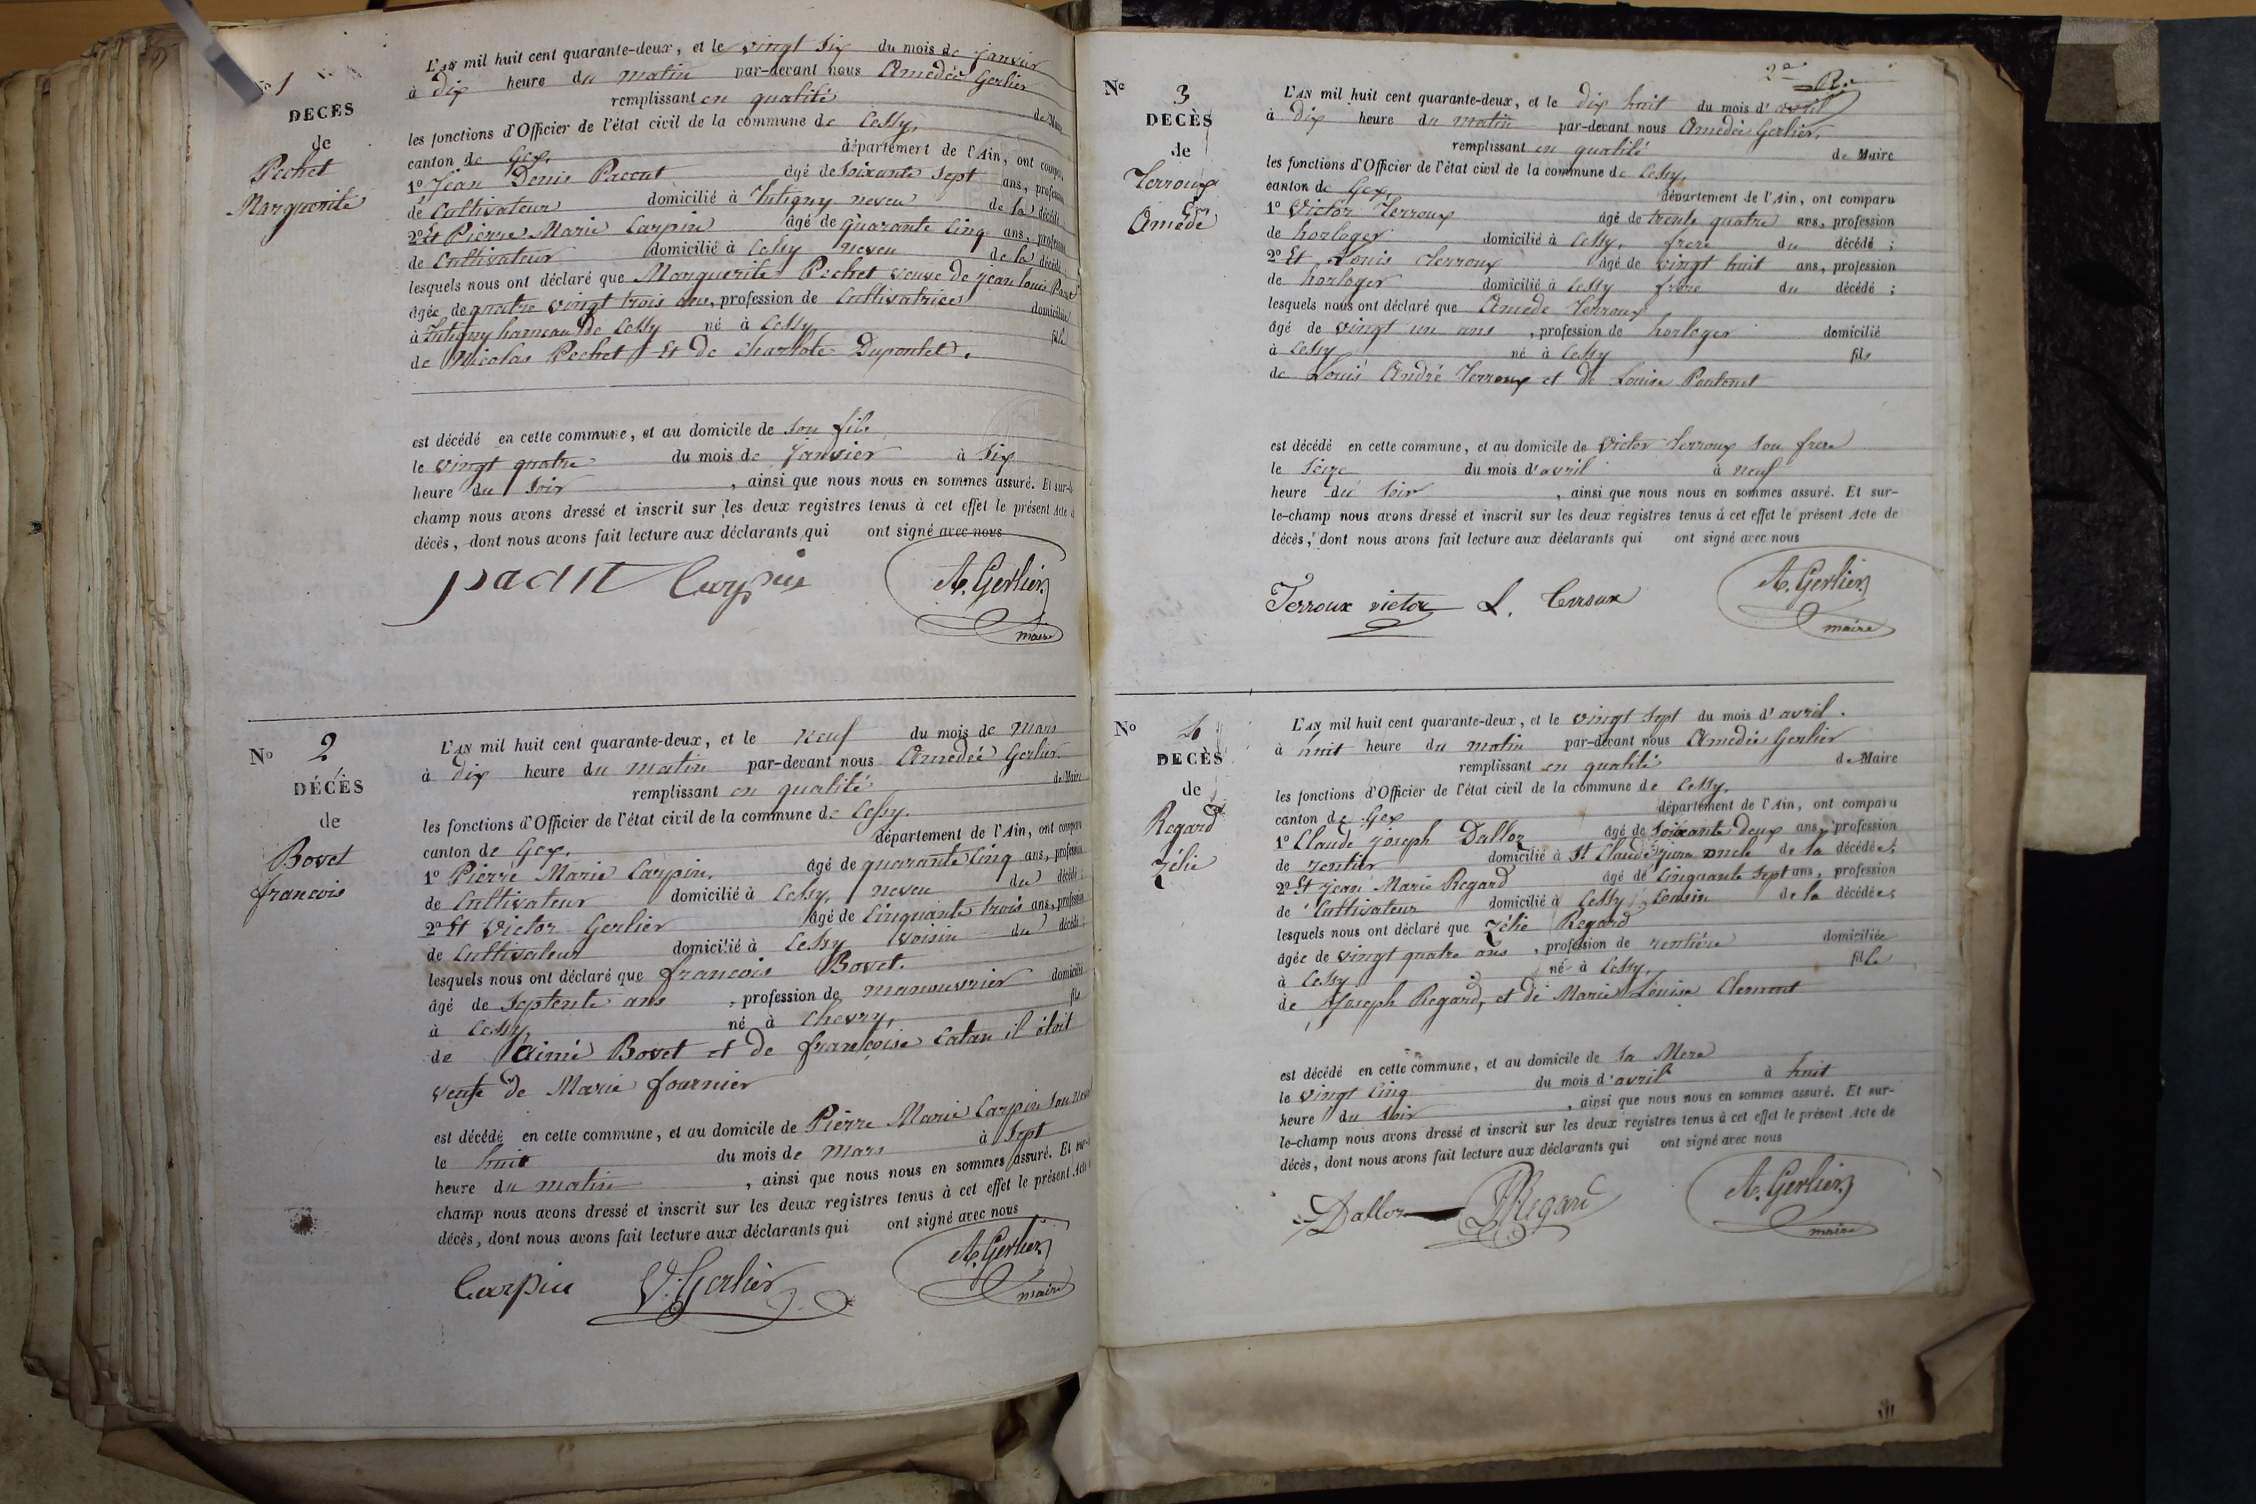 1
DECES
de
Pechet
Marguerite
L'AN mil huit cent quarante-deux, et le vingt six du mois de janvier
à dix heure du matin par-devant nous Amédée Gerlier
remplissant en qualité de Maire
les fonctions d'Officier de l'état civil de la commune de Cessy,
canton de Gex, département de l'Ain, ont comparu
1º Jean Denis Paccut âgé de soixante sept ans, profession
de Cultivateur domicilié à Intigny neveu de la décédé
2º Et Pierre Marie Carpin âgé de quarante Cinq ans, profession
de Cultivateur domicilié à Cessy neveu de la décédé
lesquels nous ont déclaré que Marguerite Pechet veuve de jean louis
âgée de quatre vingt trois ans, profession de Cultivatrice domiciliée
à Intigny hameau de Cessy né à Cessy fille
de Nicolas Pechet Et de charlote Dupontet.
est décédé en cette commune, et au domicile de son fils
le vingt quatre du mois de janvier à six
heure du soir, ainsi que nous nous en sommes assuré. Et sur-le-
champ nous avons dressé et inscrit sur les deux registres tenus à cet effet le présent Acte de
décès, dont nous avons fait lecture aux déclarants qui ont signé avec nous
Carpin A. Gerlier
maire
Nº 2
DÉCÈS
de
Bovet
francois
L'AN mil huit cent quarante-deux, et le neuf du mois de Mars
à dix heure du matin par-devant nous Amédée Gerlier
remplissant en qualité de Maire
les fonctions d'Officier de l'état civil de la commune de Cessy.
canton de Gex. département de l'Ain, ont comparu
1º Pierre Marie Carpin, âgé de quarante Cinq ans, profession
de Cultivateur domicilié à Cessy, neveu du décédé;
2º Et Victor Gerlier âgé de Cinquante trois ans, profession
de Cultivateur domicilié à Cessy voisin du décédé;
lesquels nous ont déclaré que francois Bovet.
âgé de Septente ans, profession de manouvrier domicilié
à Cessy, né à Chevry, fils
de aimé Bovet et de françoise Catan il étoit
veuf de Marie fournier
est décédé en cette commune, et au domicile de Pierre Marie Carpin son neveu
le huit du mois de Mars à Sept
heure du matin, ainsi que nous nous en sommes assuré. Et sur-le-
champ nous avons dressé et inscrit sur les deux registres tenus à cet effet le présent Acte
décès, dont nous avons fait lecture aux déclarants qui ont signé avec nous
Carpin V. Gerlier A. Gerlier
maire
2e
Nº 3
DECÈS
de
Terroux
Amédé
L'AN mil huit cent quarante-deux, et le dix huit du mois d'avril
à dix heure du matin par-devant nous Amédée Gerlier,
remplissant en qualité de Maire
les fonctions d'Officier de l'état civil de la commune de Cessy,
canton de Gex, département de l'Ain, ont comparu
1º Victor Terroux âgé de trente quatre ans, profession
de horloger domicilié à Cessy, frere du décédé;
2º Et Louis Terroux âgé de vingt huit ans, profession
de horloger domicilié à Cessy frere du décédé;
lesquels nous ont déclaré que Amédé Terroux
âgé de vingt un ans, profession de horloger domicilié
à Cessy né à Cessy fils
de Louis André Terroux et de Louise Pontenet
est décédé en cette commune, et au domicile de Victor Terroux son frere
le Seize du mois d'avril à neuf
heure du soir, ainsi que nous nous en sommes assuré. Et sur-
le-champ nous avons dressé et inscrit sur les deux registres tenus à cet effet le présent Acte de
décès, dont nous avons fait lecture aux déclarants qui ont signé avec nous
Terroux victor L. Teroux A. Gerlier
maire
Nº 4
DECÈS
de
Regard
Zélie
L'AN mil huit cent quarante-deux, et le vingt sept du mois d'avril.
à huit heure du matin par-devant nous Amédée Gerlier
remplissant en qualité de Maire
les fonctions d'Officier de l'état civil de la commune de Cessy,
canton de Gex département de l'Ain, ont comparu
1º Claude joseph Dalloz âgé de soixante deux ans, profession
de rentier domicilié à St Claude jura oncle de la décédée;
2º Et jean Marie Regard âgé de Cinquante sept ans, profession
de Cultivateur domicilié à Cessy Cousin de la décédée;
lesquels nous ont déclaré que Zélie Regard
âgée de vingt quatre ans, profession de rentière domiciliée
à Cessy né à Cessy, fille
de Joseph Regard, et de Marie Louise Clement
est décédé en cette commune, et au domicile de sa Mere
le vingt Cinq du mois d'avril à huit
heure du soir, ainsi que nous nous en sommes assuré. Et sur-
le-champ nous avons dressé et inscrit sur les deux registres tenus à cet effet le présent Acte de
décès, dont nous avons fait lecture aux déclarants qui ont signé avec nous
Dalloz Regard A. Gerlier
maire